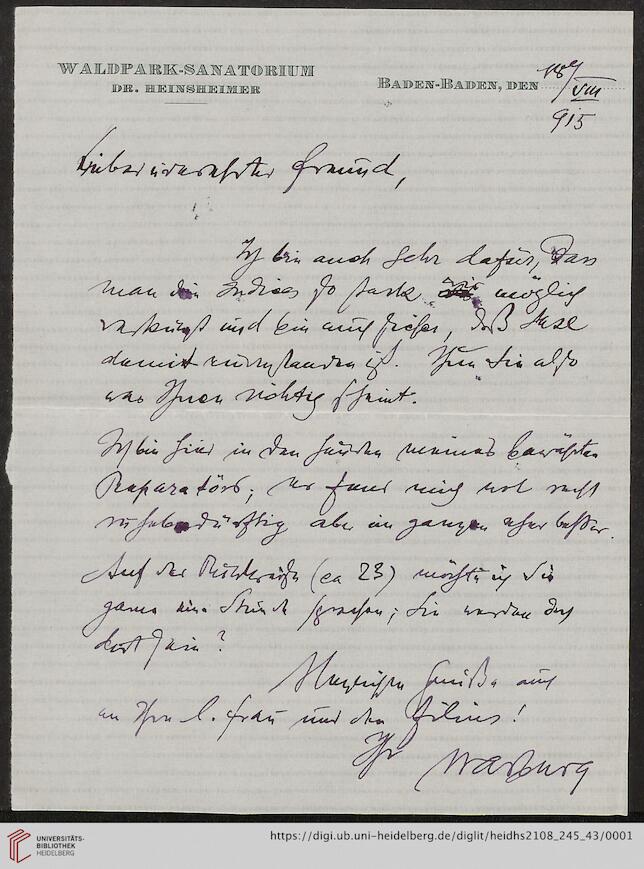 WALDPARK-SANATORIUM
DR. HEINSHEIMER
BADEN-BADEN, DEN 18/VIII
915
Lieber verehrter Freund,
Ich bin auch sehr dafür, dass
man den Indices so stark möglich
verkürzt und bin auch sicher, daß
damit einverstanden ist. Thun Sie also
was Ihnen richtig scheint.
Ich bin hier in den Händen meines bewährten
Reparatörs; er fand mich erst recht
ruhebedürftig aber im ganzen eher besser.
Auf der Rückreise (ca 23) möchte ich Sie
gerne eine Stunde sprechen; Sie werden doch
dort sein?
Herzlichen Grüße auch
an Ihre l. Frau und den Filius!
Ihr Warburg
UNIVERSITÄTS-
BIBLIOTHEK
HEIDELBERG
https://digi.ub.uni-heidelberg.de/diglit/heidhs2108_245_43/0001